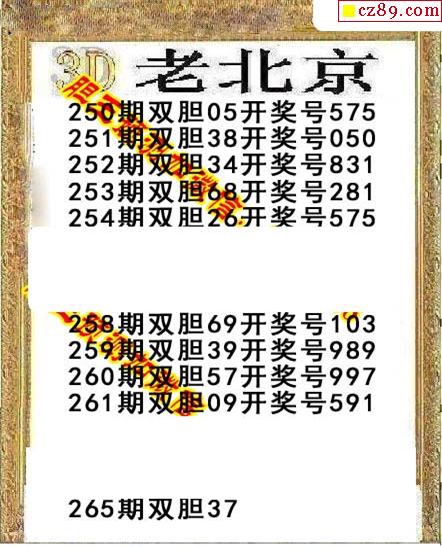 cz89.com
3D 老北京
250期双胆05开奖号575
251期双胆38开奖号050
252期双胆34开奖号831
253期双胆68开奖号281
254期双胆26开奖号575
258期双胆69开奖号103
259期双胆39开奖号989
260期双胆57开奖号997
261期双胆09开奖号591
265期双胆37